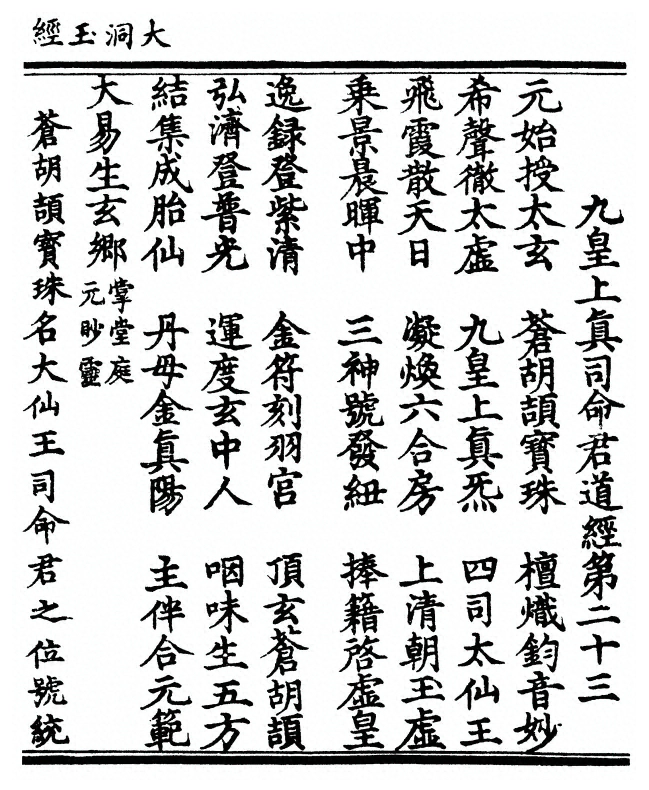 大洞玉經
九皇上眞司命君道經第二十三
元始授太玄 蒼胡頡寶珠 檀熾鈞音妙
希聲徹太虛 九皇上眞炁 四司太仙王
飛霞散天日 凝煥六合房 上清朝玉虛
乗景晨暉中 三神號發紐 捧籍啓虛皇
逸録登紫清 金符刻羽宫 頂玄蒼胡頡
弘濟登普光 運度玄中人 咽味生五方
結集成胎仙 丹母金眞陽 主伴合元範
大易生玄鄉 掌堂庭元眇靈
蒼胡頡寳珠名大仙王司命君之位號統